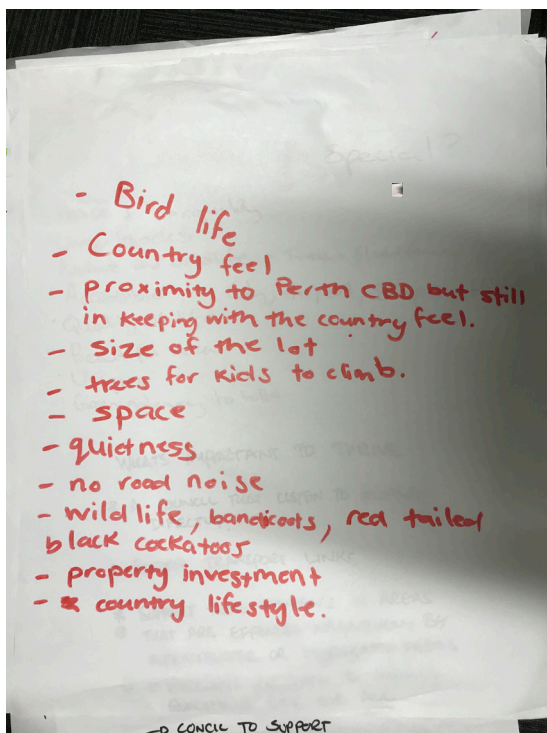 Special?
- Bird life
- Country feel
- proximity to Perth CBD but still
in keeping with the country feel.
- Size of the lot
- trees for kids to climb.
- space
- quietness
- no road noise
- wildlife, bandicoots, red tailed
black cockatoos
- property investment
- country lifestyle.
CONCIL TO SUPPORT